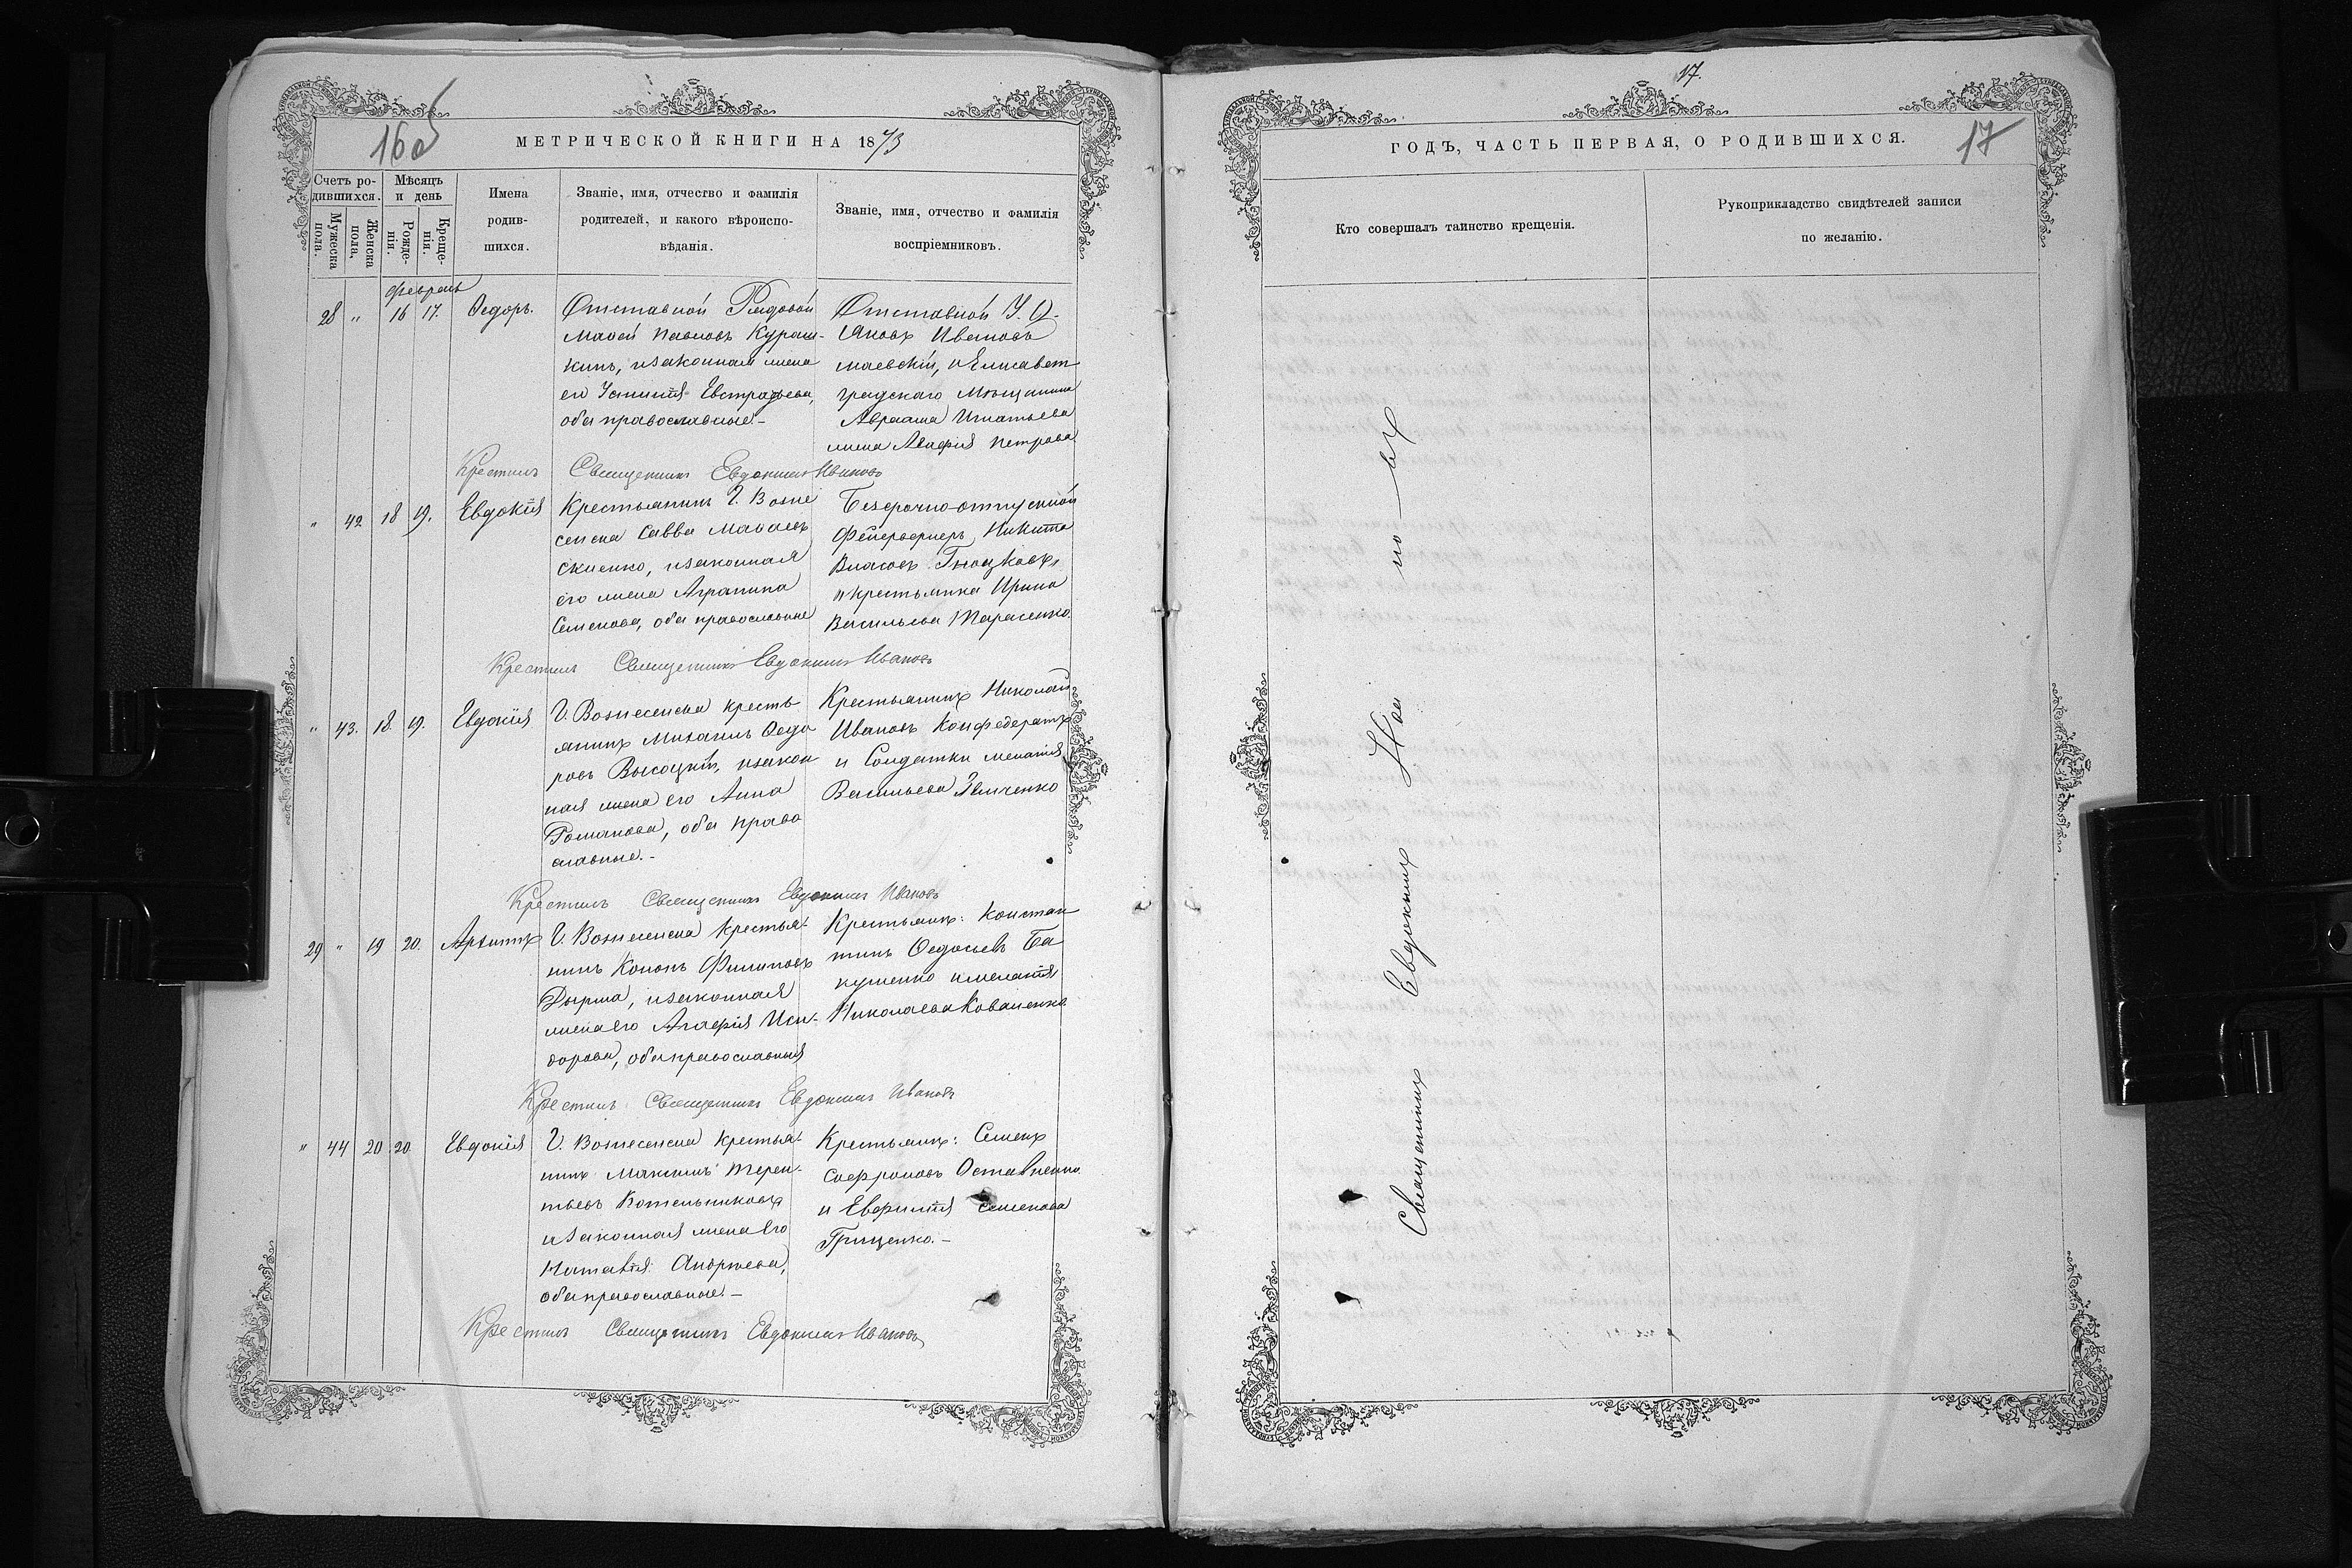 16 об
МЕТРИЧЕСКОЙ КНИГИ НА 1873
Счетъ ро-
дившихся.
Мужеска
пола.
Женска
пола.
Мѣсяцъ
и день
Рожде-
нія.
Креще-
нія.
Имена
родив-
шихся.
Званіе, имя, отчество и фамилія
родителей, и какого вѣроиспо-
вѣданія.
Званіе, имя, отчество и фамилія
воспріемниковъ.
Февраль
28 " 16 17. Ѳедоръ.
Отставной Рядовой
Павловъ Кураш-
кинъ, и законная жена
его Устинія Евстратьева,
оба православные.-
Отставной У. О.
Яковъ Ивановъ
маевскій, и Елисавет
градскаго Мѣщанина
Авраама Игнатьева
жена Агафія Петрова
Крестилъ Священникъ Евдокимъ Ивановъ
" 42 18 19. Евдокія
Крестьянинъ Г. Возне
сенска Савва
его жена Агрипина
Семенова, оба православные
Безсрочно-отпускной
Фейерверкеръ Никита
Власовъ
и крестьянка Ирина
Васильева Тарасенко.
Крестилъ Священникъ Евдокимъ Ивановъ
" 43. 18. 19. Евдокія
Г. Вознесенска кресть
янинъ Михаилъ Ѳедо
ровъ Высоцкій, и закон
ная жена его Анна
Романова, оба право
славные.-
Крестьянинъ Николай
Ивановъ Конфедератъ
и Солдатка Меланія
Васильева
Крестилъ Священникъ Евдокимъ Ивановъ
29 " 19 20. Архипъ
Г. Вознесенска Крестья-
нинъ Кононъ Филиповъ
Дырма, и законная
жена его Агафія Иси-
дорова, оба православныя
Крестьяне: Констан
тинъ Ѳедосьевъ Ба
куменко и Меланія
Николаева Коваленко
Крестилъ Священникъ Евдокимъ Ивановъ
" 44 20 20 Евдокія
Г. Вознесенска крестья-
нинъ Максимъ Терен-
тьевъ Котельниковъ
и законная жена его
Наталія Андреева,
оба православные.-
Крестьяне: Семенъ
Софроновъ Оставненко
и Евфимія Семенова
Гриценко.-
Крестилъ Священникъ Евдокимъ Ивановъ
17.
17
ГОДЪ, ЧАСТЬ ПЕРВАЯ, О РОДИВШИХСЯ.
Кто совершалъ таинство крещенія.
Рукоприкладство свидѣтелей записи
по желанію.
Священникъ Евдокимъ Ива но въ